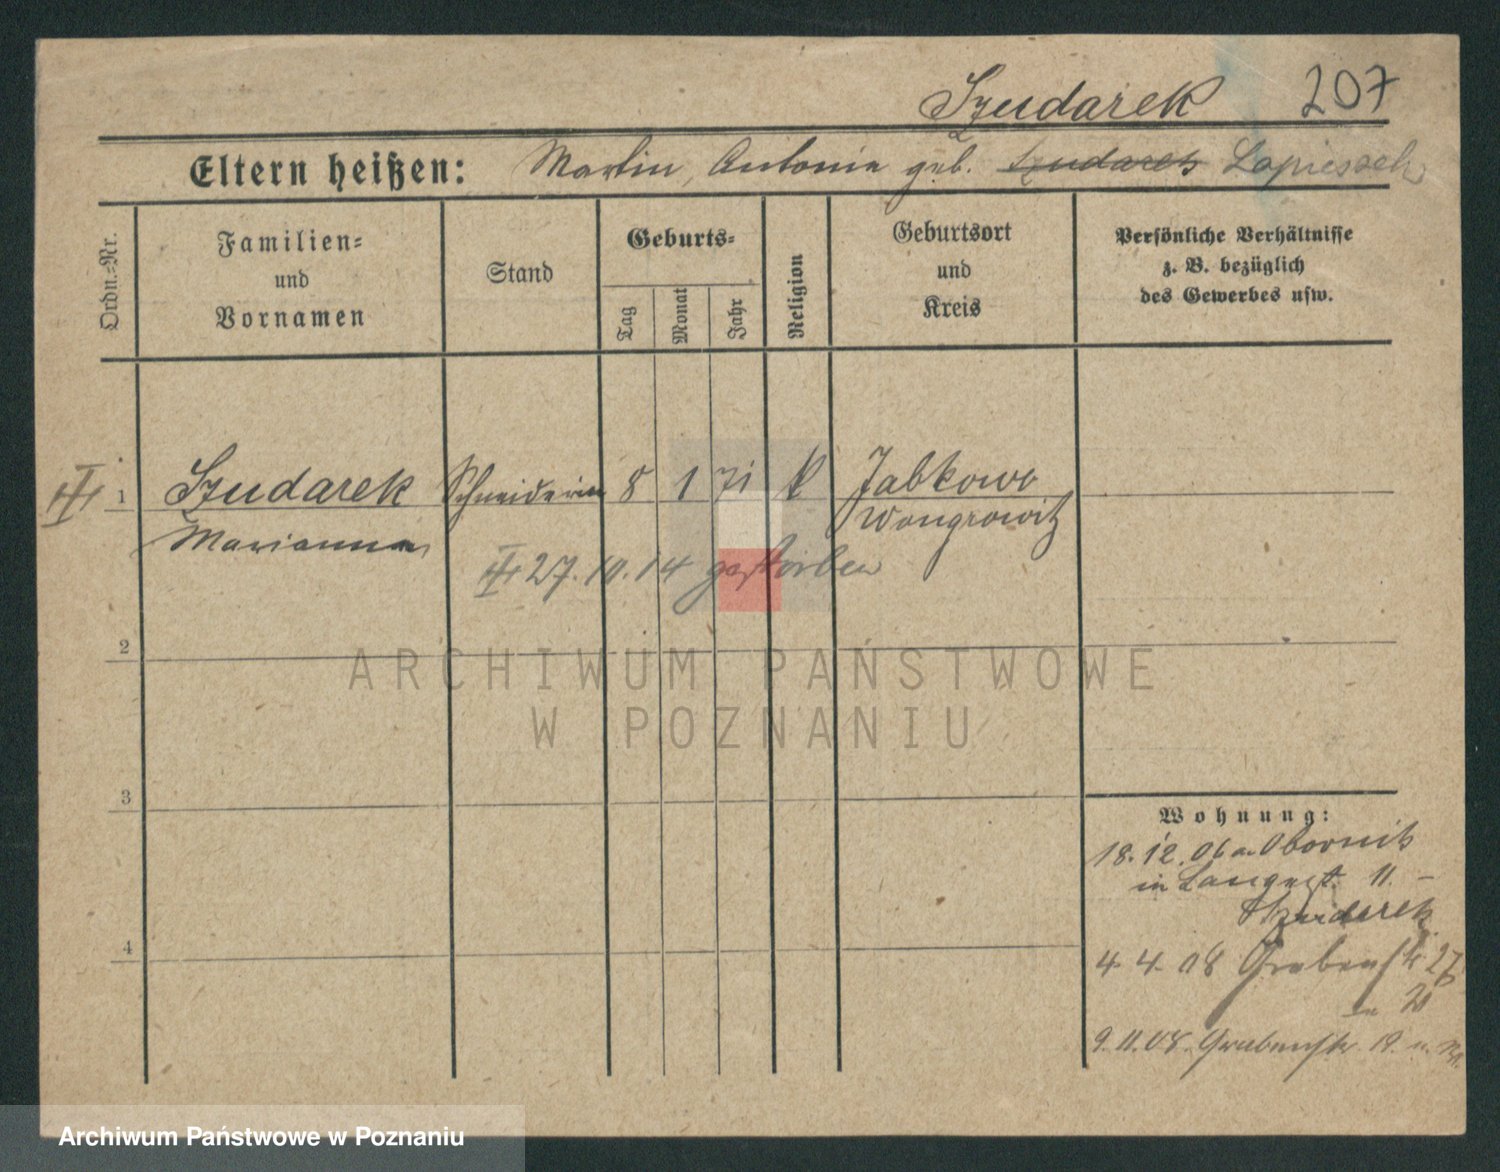 Szudarek 207
Eltern heißen: Martin, Antonie geb. Szudarek Lapiesach
Ordn.-Nr.
Familien-
und
Vornamen
Stand
Geburts-
Tag
Monat
Jahr
Religion
Geburtsort
und
Kreis
Persönliche Verhältnisse
z. B. bezüglich
des Gewerbes usw.
1 Szudarek Schneiderin 8 1 71 k Jabkowo
Marianna Wongrowitz
27. 10. 14 gestorben
2
3
4
Wohnung:
18. 12. 06 a. Obornik
in Langest. 11 -
Szudarek
4. 4. 08 Grabenstr 27
9. 11. 08. Grabenstr. 19.
ARCHIWUM PAŃSTWOWE
W POZNANIU
Archiwum Państwowe w Poznaniu